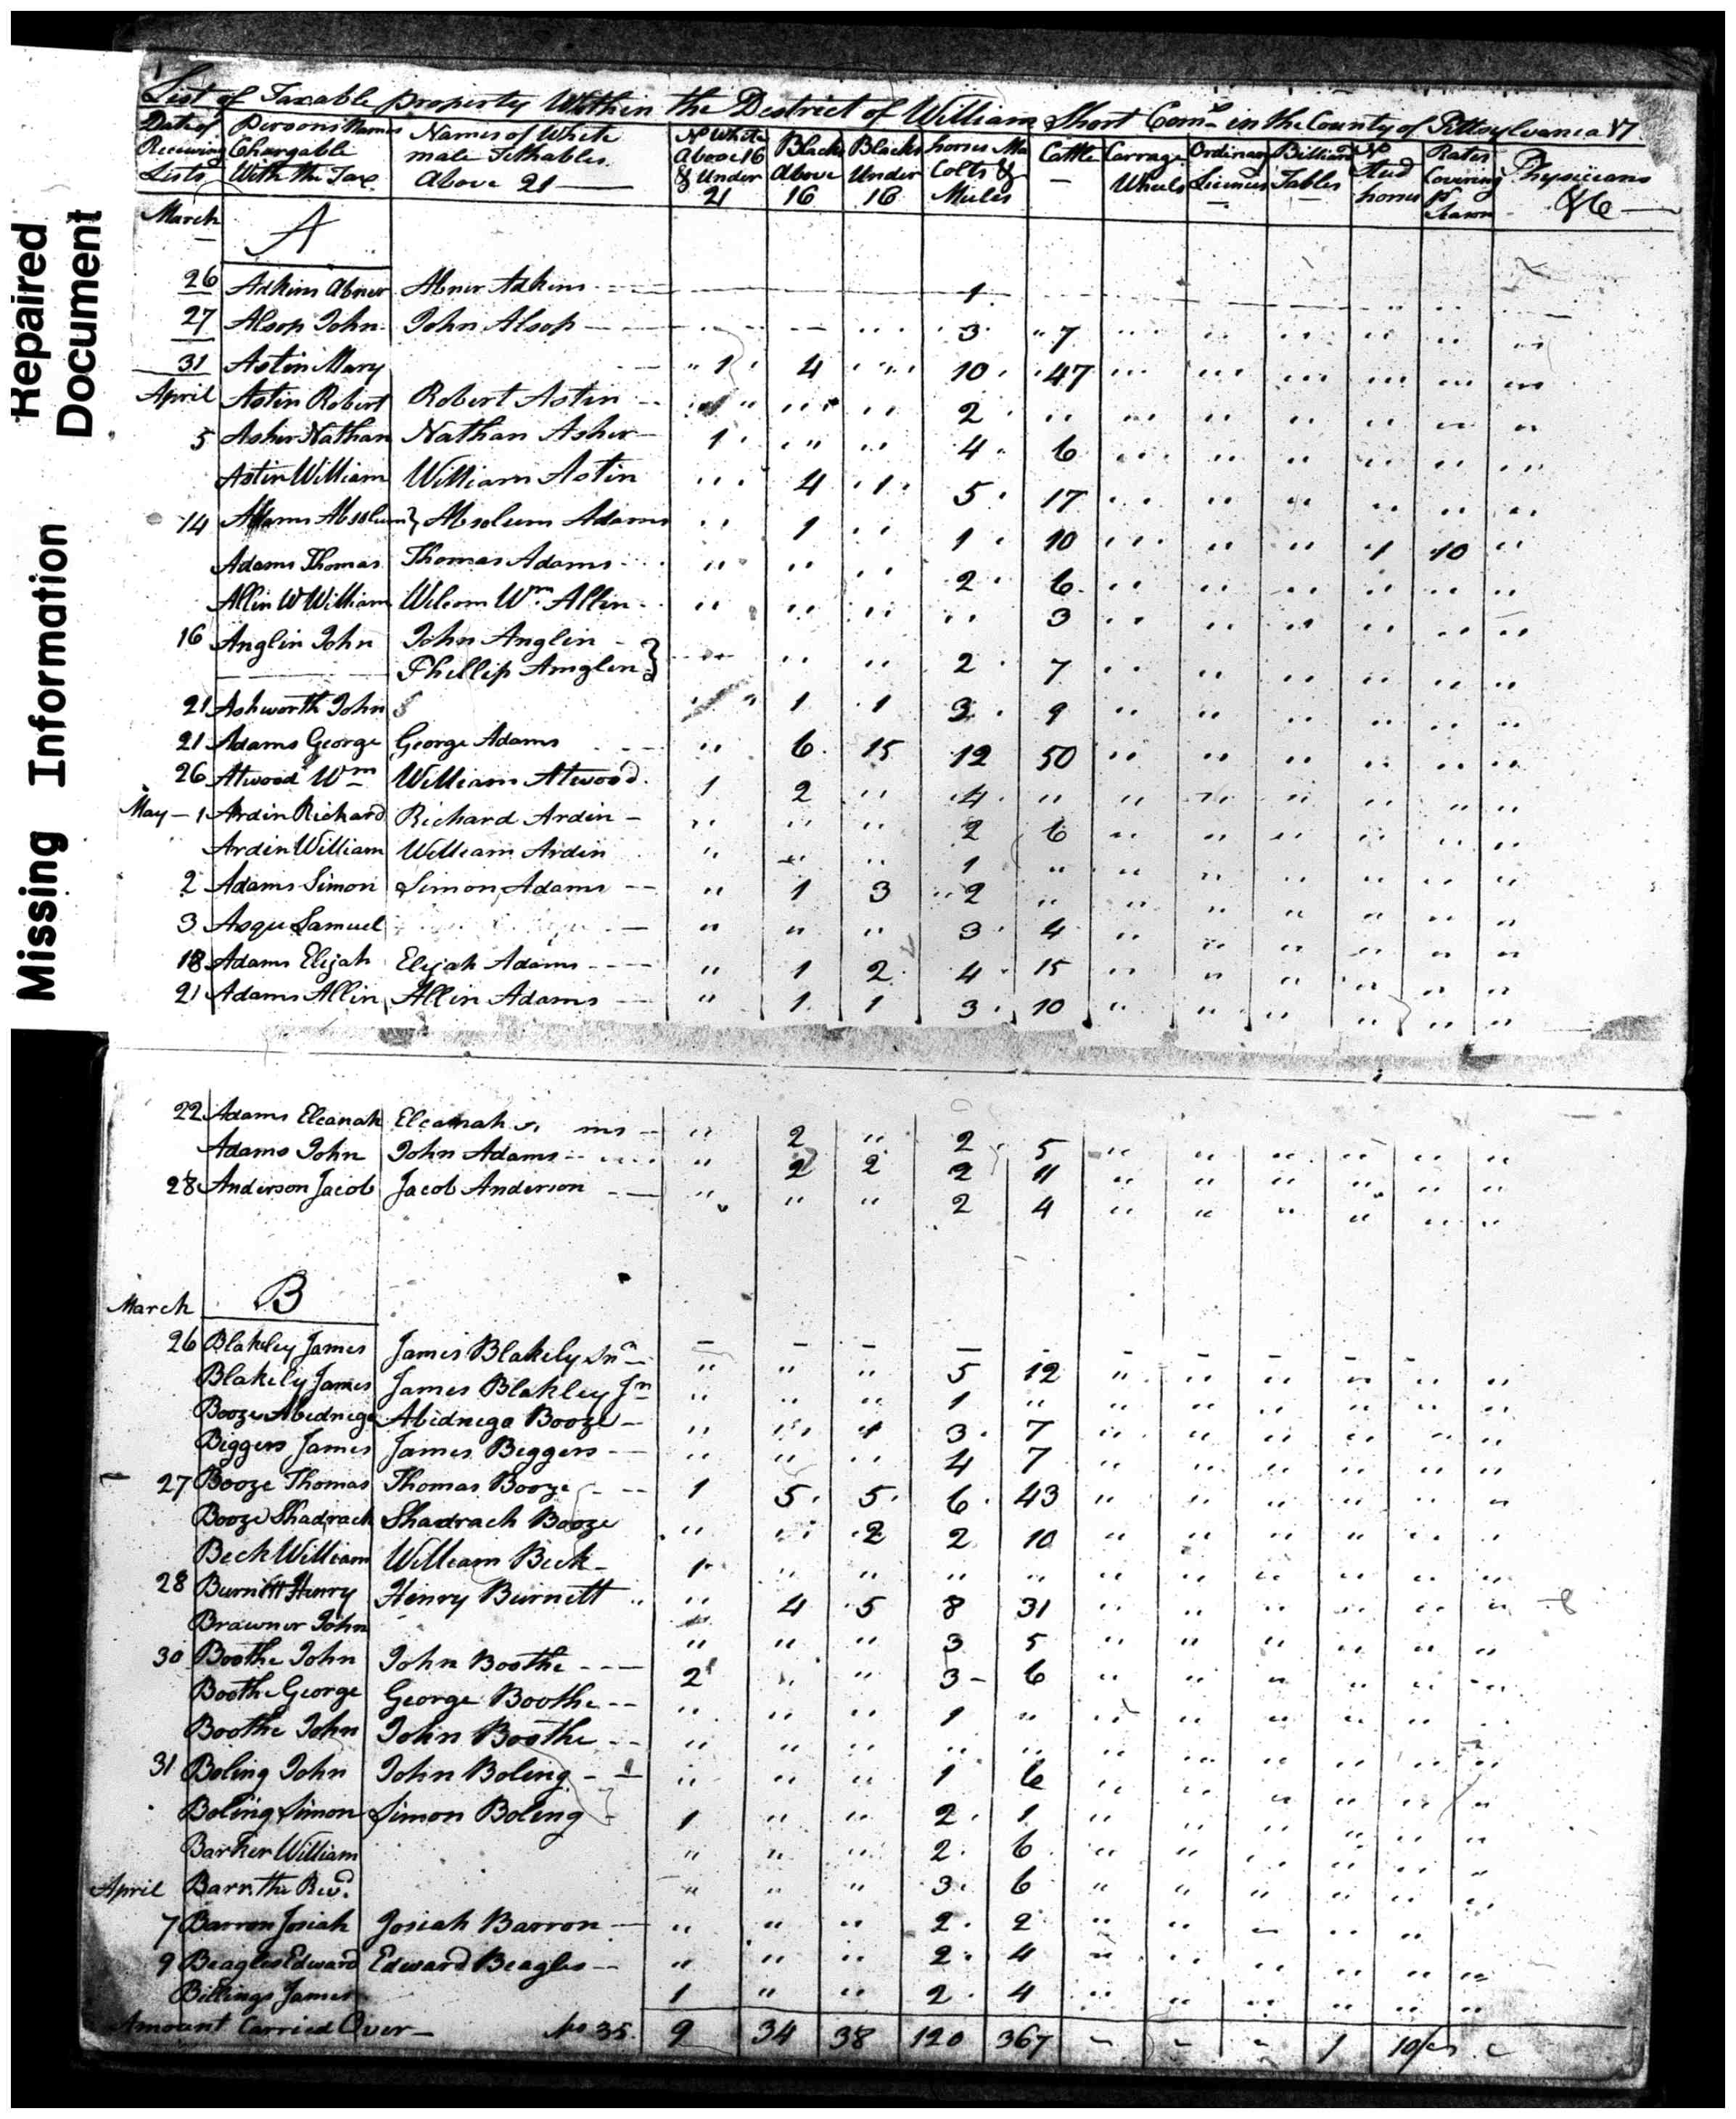 Repaired Document
Missing Information
List of Taxable property Within the District of William Short Comr in the County of Pittsylvania 17
Dates of Receiving Lists | Persons Names Chargable With the Tax | Names of White male Tithables Above 21 | No White Above 16 & Under 21 | Blacks Above 16 | Blacks Under 16 | horses Ma Colts & Mules | Cattle | Carrage Wheels | Ordinary Licences | Billiard Tables | Stud horses | Rates Covering pr Season | Physicians &c
March A
26 Adkins Abner Abner Adkins 1
27 Alsop John John Alsop 3 7
31 Astin Mary 1 4 " 10 47
April Astin Robert Robert Astin " " " 2 "
5 Asher Nathan Nathan Asher 1 " " 4 6
Astin William William Astin " 4 1 5 17
14 Adams Absolum Absolum Adams " 1 " 1 10 " " " 1 10 "
Adams Thomas Thomas Adams " " " 2 6
Allin W William Welcom Wm Allin " " " " 3
16 Anglin John John Anglin
Phillip Amglin } " " " 2 7
21 Ashworth John " 1 1 3 9
21 Adams George George Adams " 6 15 12 50
26 Atwood Wm William Atwood 1 2 " 4 "
May 1 Ardin Richard Richard Ardin " " " 2 6
Ardin William William Ardin " " " 1 "
2 Adams Simon Simon Adams " 1 3 2 "
3 Asque Samuel " " " 3 4
18 Adams Elijah Elijah Adams " 1 2 4 15
21 Adams Allin Allin Adams " 1 1 3 10
22 Adams Eleanah Eleanah ms " 2 " 2 5
Adams John John Adams " 2 2 2 11
28 Anderson Jacob Jacob Anderson " " " 2 4
March B
26 Blakeley James James Blakely Snr " " " 5 12
Blakely James James Blakley Jn " " " 1 "
Booze Abednego Abidnego Booze " " 1 3 7
Biggers James James Beggers " " " 4 7
27 Booze Thomas Thomas Booze 1 5 5 6 43
Booze Shadrach Shadrach Booze " " 2 2 10
Beck William William Beck 1 " " " "
28 Burnitt Henry Henry Burnett " 4 5 8 31
Brawner John " " " 3 5
30 Boothe John John Boothe 2 " " 3 6
Boothe George George Boothe " " " 1 "
Boothe John John Boothe " " " " "
31 Boling John John Boling " " " 1 6
Boling Simon Simon Boling 1 " " 2 1
Barker William " " " 2 6
April Barr the Revd. " " " 3 6
7 Barron Josiah Josiah Barron " " " 2 2
9 Beagles Edward Edward Beagles " " " 2 4
Billings James 1 " " 2 4
Amount Carried Over No 35. 9 34 38 120 367 " " " 1 10/